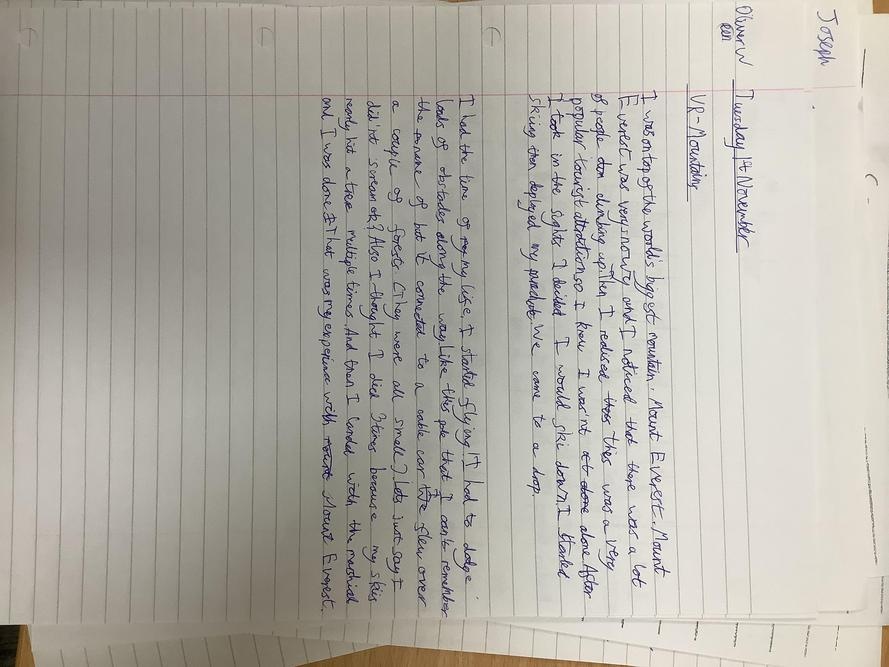 Joseph
Oliver W Tuesday 1st November
pen
VR-Mountains
I was on top of the world's biggest mountain. Mount Everest. Mount
Everest was very snowy and I noticed that there was a lot
of people climbing up. Then I realised this was a very
popular tourist attraction so I knew I wasn't alone. After
I took in the sights I decided I would ski down. I started
skiing then deployed my parachute. We came to a drop.
I had the time of my life. I started flying! I had to dodge
loads of obstacles along the way like this pole that I can't remember
the name of but it connected to a cable car. We flew over
a couple of forests. (They were all small). Lets just say I
did not scream ok? Also I thought I died 3 times because my skis
nearly hit a tree multiple times. And then I landed with the
and I was done. That was my experience with Mount Everest.